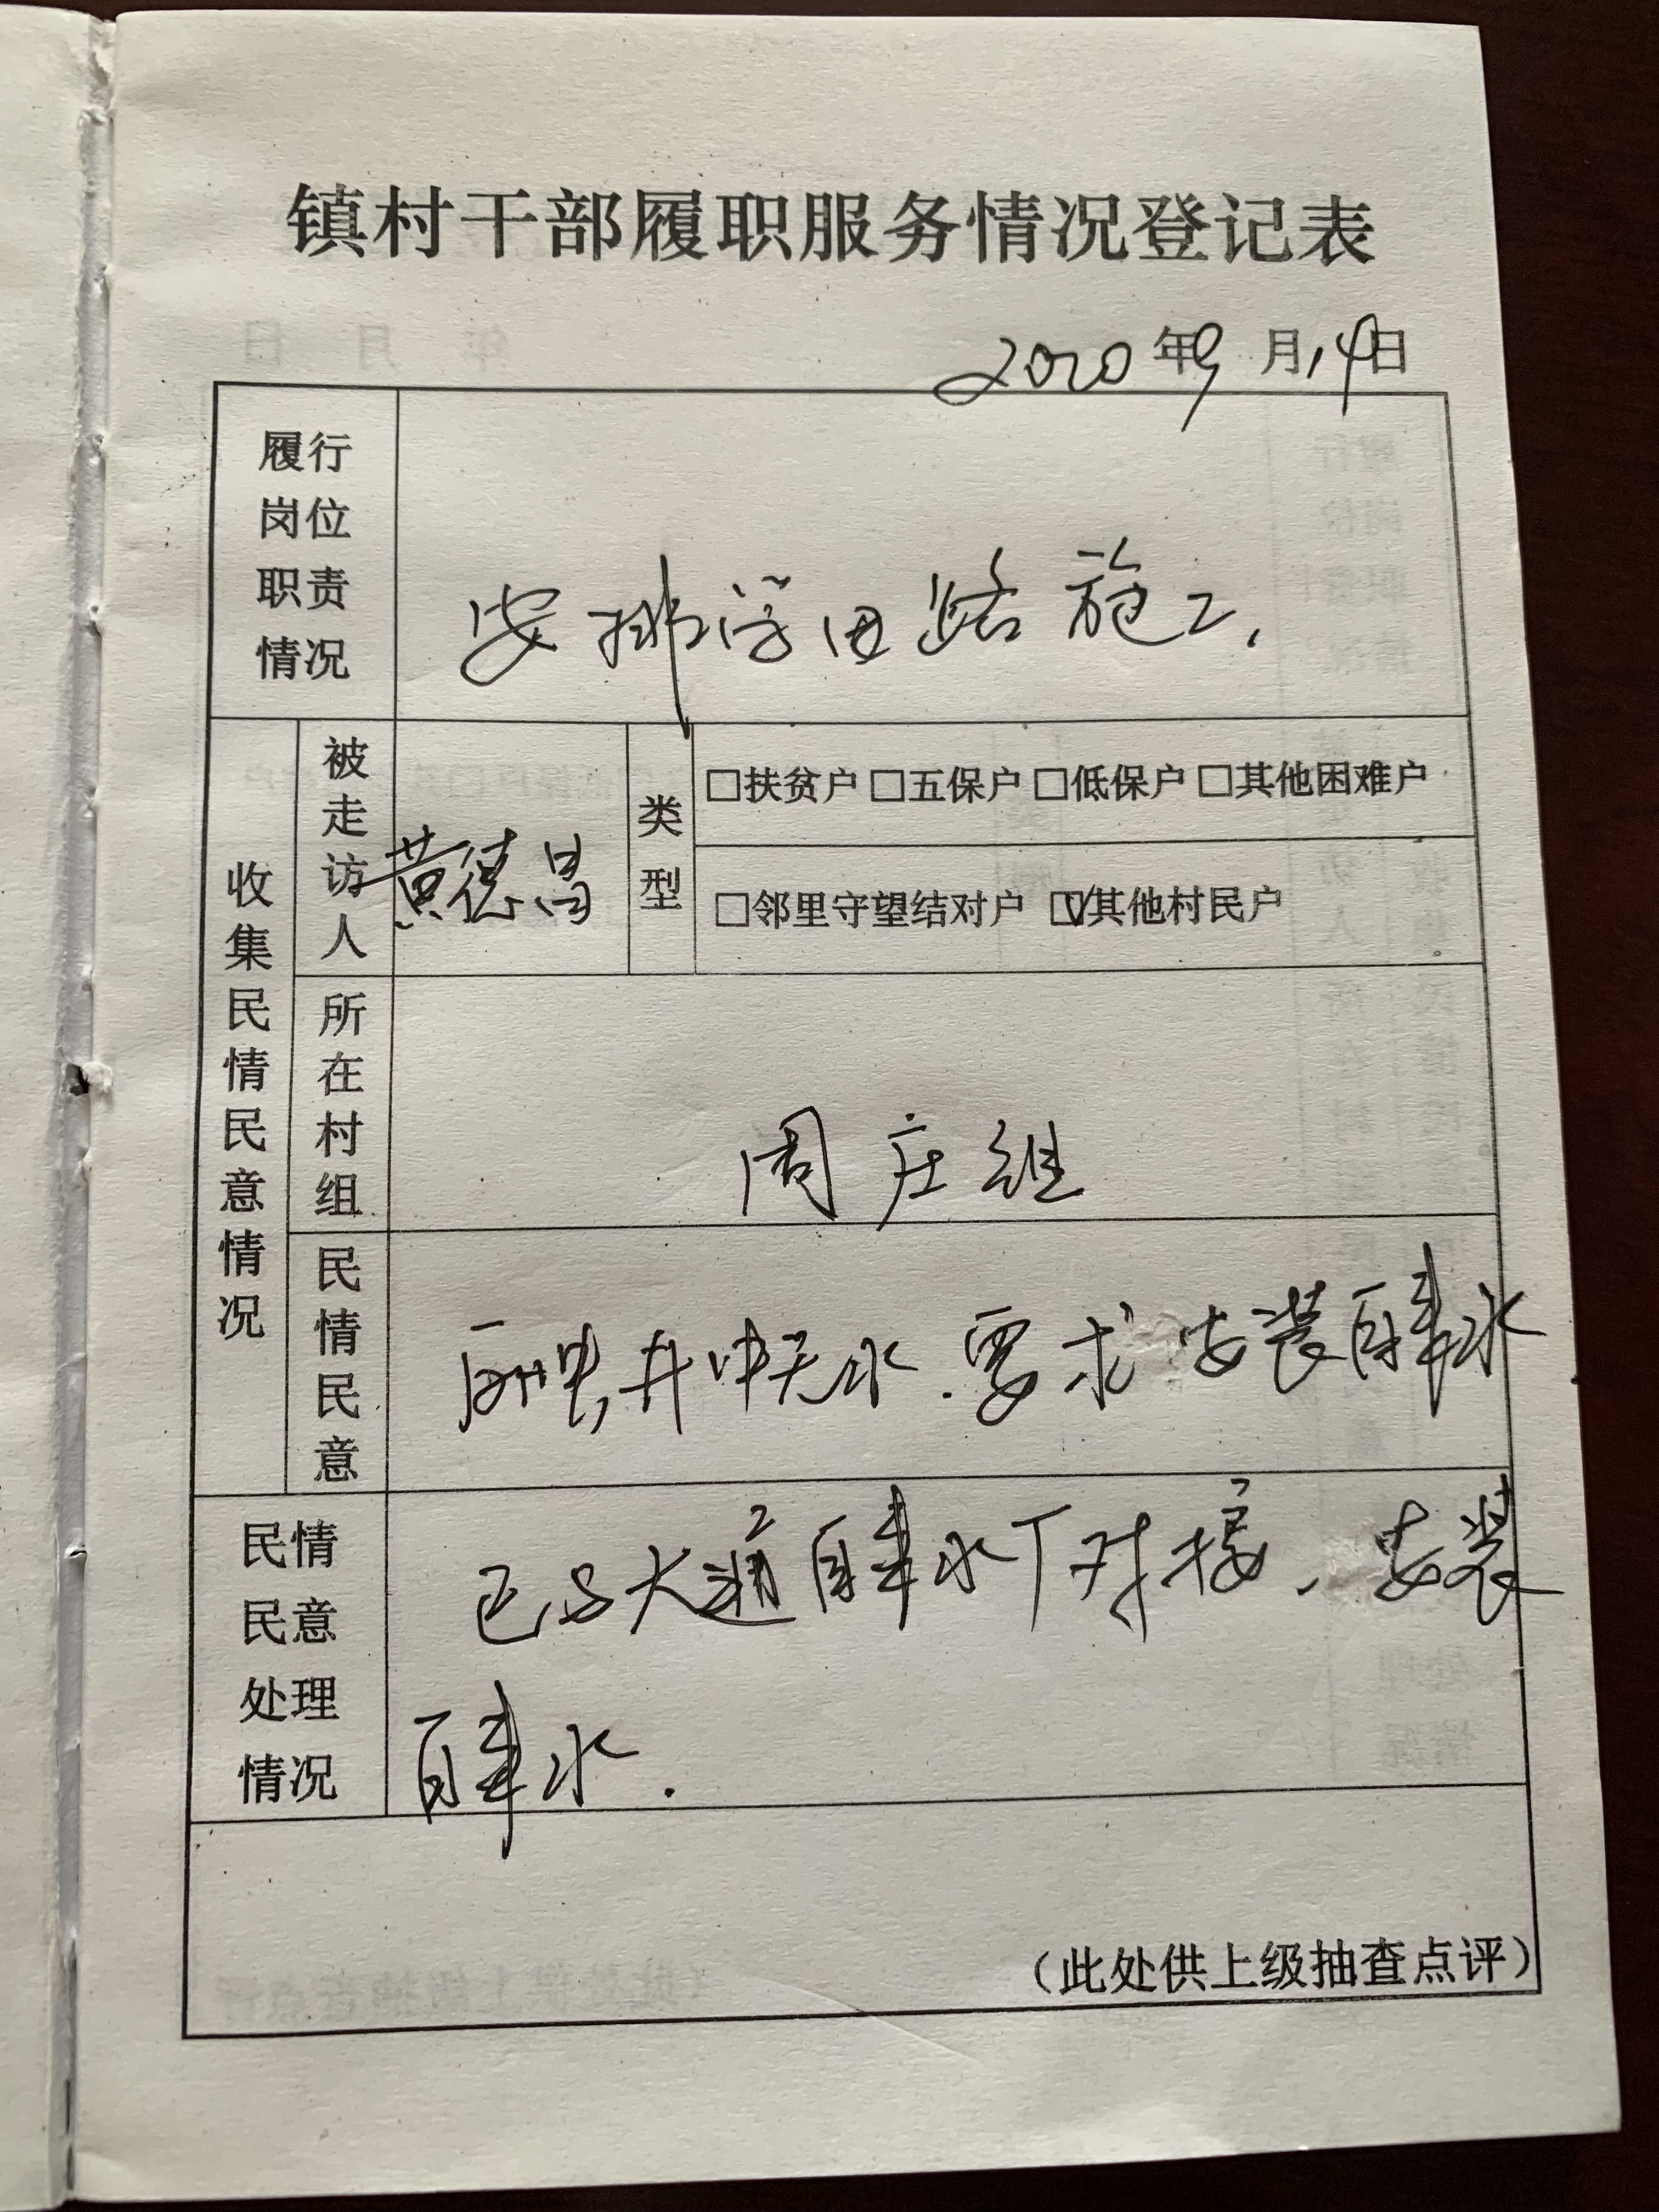 镇村干部履职服务情况登记表
2020年9月14日
履行岗位职责情况
安排学田路施工,
收集民情民意情况
被走访人
黄德昌
类型
□扶贫户 □五保户 □低保户 □其他困难户
□邻里守望结对户 ☑其他村民户
所在村组
周庄组
民情民意
反映井中无水.要求安装自来水
民情民意处理情况
已与大通自来水厂对接、安装
自来水.
(此处供上级抽查点评)